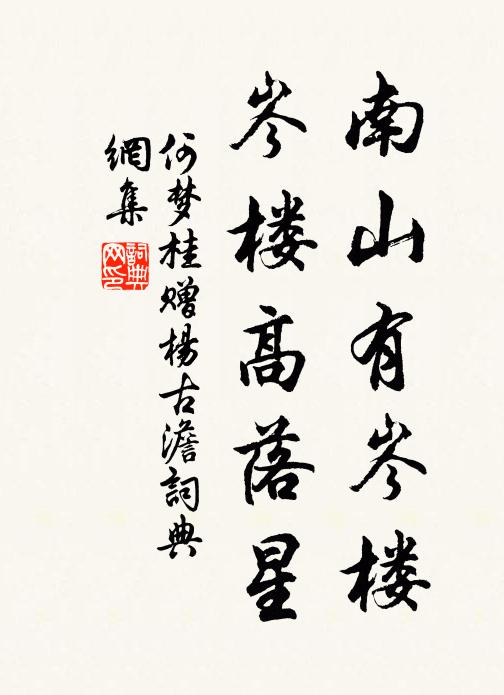 南山有岑楼
岑楼高落星
何梦桂赠杨古澹詞典
網集
詞典
网印